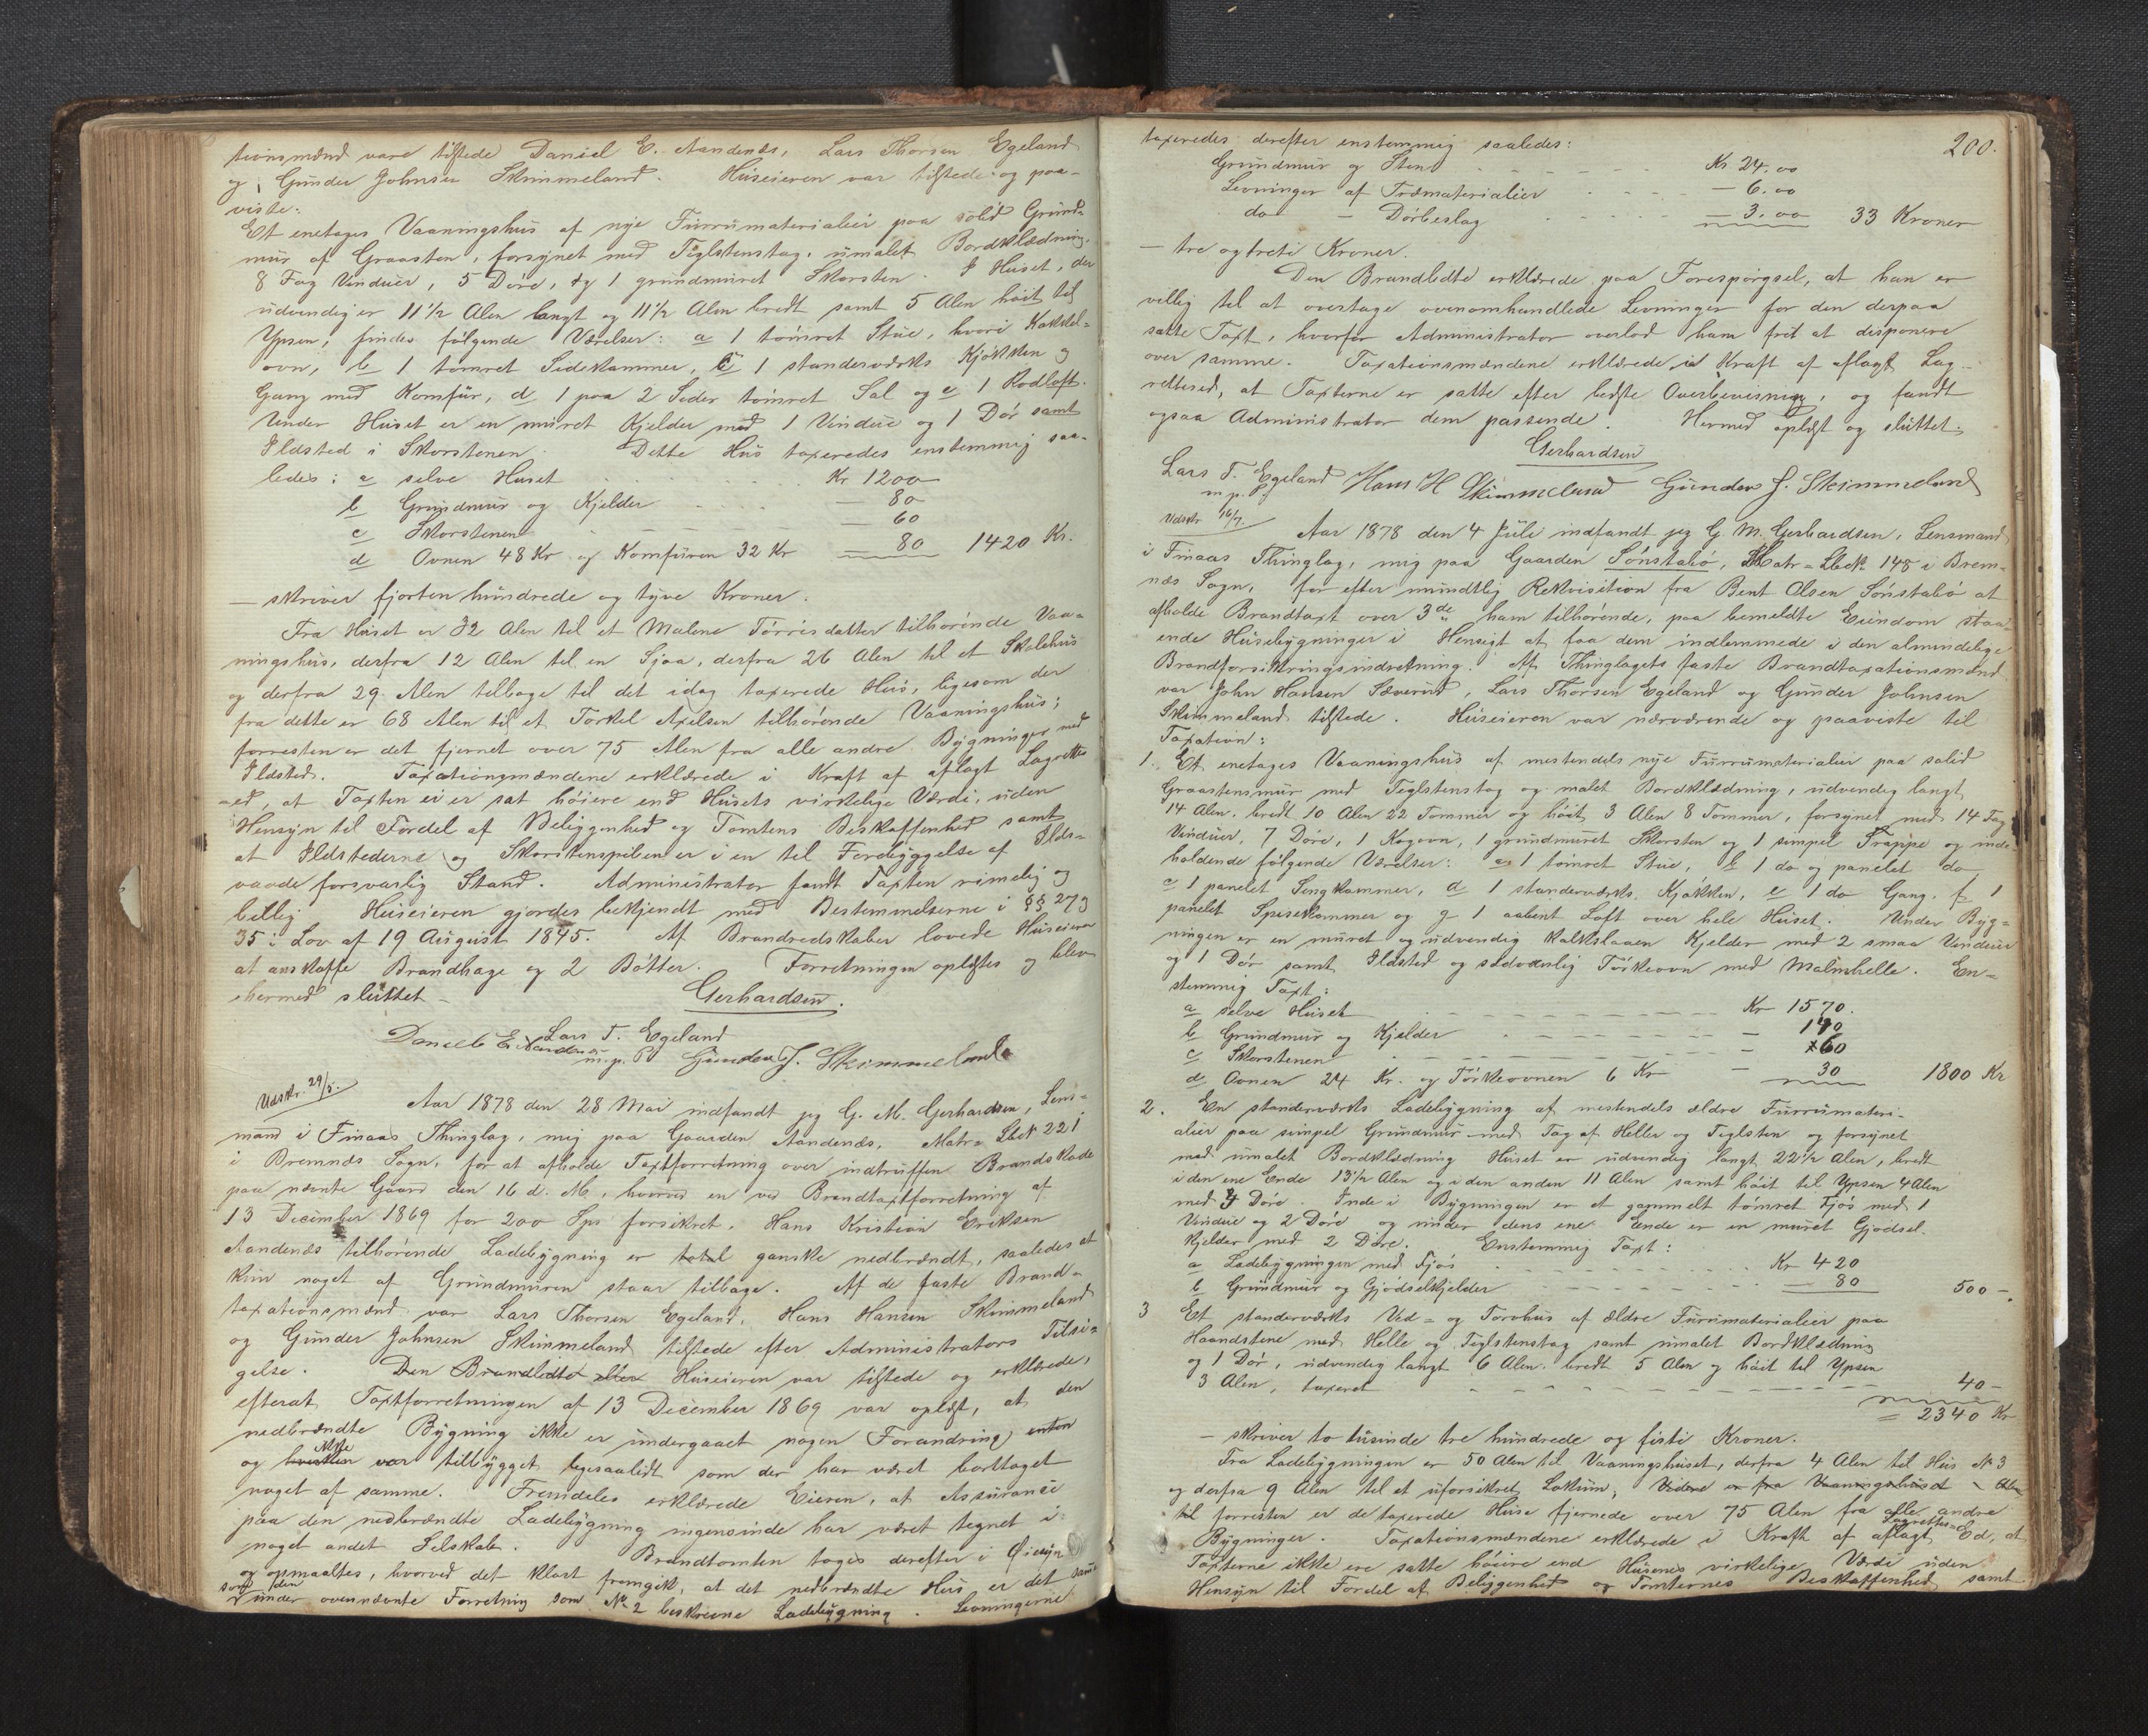 tionsmænd vare tilstede Daniel E. Aandenæs, Lars Thorsen Egeland
og Gunder Johnsen Skimmeland. Huseieren var tilstede og paa-
viste:
Et enetages Vaaningshus af nye Furrumaterialier paa solid Grund-
mur af Graasten, forsynet med Teglstenstag, umalet Bordklædning,
8 Fag Vinduer, 5 Døre, og 1 grundmuret Skorsten. I Huset, der
udvendig er 11 1/2 Alen langt og 11 1/2 Alen bredt samt 5 Alen høit til
Ypsen, findes følgende Værelser: a 1 tømret Stue, hvori Kakkel-
ovn, b 1 tømret Sidekammer, c 1 standerværks Kjøkken og
Gang med Komfur, d 1 paa 2 Sider tømret Sal og e 1 Rodloft.
Under Huset er en muret Kjelder med 1 Vindue og 1 Dør samt
Ildsted i Skorstenen. Dette Hus taxeredes enstemmig saa-
ledes: a selve Huset Kr 1200
b Grundmur og Kjelder — 80
c Skorstenen — 60
d Ovnen 48 Kr og Komfuren 32 Kr — 80 1420 Kr.
— skriver fjorten hundrede og tyve Kroner.
Fra Huset er 32 Alen til et Malene Tørrisdatter tilhørende Vaa-
ningshus, derfra 12 Alen til en Sjøa, derfra 26 Alen til et Skolehus
og derfra 29 Alen tilbage til det idag taxerede Hus, ligesom der
fra dette er 68 Alen til et Torkel Axelsen tilhørende Vaaningshus;
forresten er det fjernet over 75 Alen fra alle andre Bygninger med
Ildsted. Taxationsmændene erklærede i Kraft af aflagt Lagrettes
ed, at Taxten ei er sat høiere end Husets virkelige Værdi, uden
Hensyn til Fordel af Beliggenhed og Tomtens Beskaffenhed samt
at Ildstederne og Skorstenspiben er i en til Forebyggelse af Ilds-
vaade forsvarlig Stand. Administrator fandt Taxten rimelig og
billig. Huseieren gjordes bekjendt med Bestemmelserne i §§ 27 og
35 i Lov af 19 August 1845. Af Brandredskaber lovede Huseieren
at anskaffe Brandhage og 2 Bøtter. Forretningen oplæstes og blev
hermed sluttet.
Gerhardsen.
Daniel E Aandenæs Lars T. Egeland
m. p. P. Gunder J. Skimmeland
Udskr. 29/5.
Aar 1878 den 28 Mai indfandt jeg G. M. Gerhardsen, Lens-
mand i Finaas Thinglag, mig paa Gaarden Aandenæs, Matr= Lb№ 221
i Bremnæs Sogn, for at afholde Taxtforretning over indtruffen Brandskade
paa nævnte Gaard den 16 d. M., hvorved en ved Brandtaxtforretning af
13 December 1869 for 200 Spd forsikret, Hans Kristian Eriksen
Aandenæs tilhørende Ladebygning er total ganske nedbrændt, saaledes at
kun noget af Grundmuren staar tilbage. Af de faste Brand-
taxationsmænd var Lars Thorsen Egeland, Hans Hansen Skimmeland
og Gunder Johnsen Skimmeland tilstede efter Administrators Tilsi-
gelse. Den Brandlidte eller Huseieren var tilstede og erklærede,
efterat Taxtforretningen af 13 December 1869 var oplæst, at den
nedbrændte Bygning ikke er undergaaet nogen Forandring enten
og hverken ikke var tilbygget ligesaalidt som der har været borttaget
noget af samme. Fremdeles erklærede Eieren, at Assurance
paa den nedbrændte Ladebygning ingensinde har været tegnet i
noget andet Selskab. Brandtomten toges derefter i Øiesyn
og opmaaltes, hvorved det klart fremgik, at det nedbrændte Hus er det samme
som den under ovennævnte Forretning som № 2 beskrevne Ladebygning. Levningerne
200.
taxeredes derefter enstemmig saaledes:
Grundmur og Sten Kr. 24.00
Levninger af Træmaterialier — 6.00
do — Dørbeslag — 3.00 33 Kroner
— tre og treti Kroner.
Den Brandlidte erklærede paa Forespørgsel, at han er
villig til at overtage ovenomhandlede Levninger for den derpaa
satte Taxt, hvorfor Administrator overlod ham frit at disponere
over samme. Taxationsmændene erklærede i Kraft af aflagt Lag-
rettesed, at Taxterne er satte efter bedste Overbevisning, og fandt
ogsaa Administrator dem passende. Hermed oplæst og sluttet.
Gerhardsen
Lars T. Egeland Hans H Skimmeland Gunder J. Skimmeland
m. p. P.
Udskr 16/7.
Aar 1878 den 4 Juli indfandt jeg G. M. Gerhardsen, Lensmand
i Finaas Thinglag, mig paa Gaarden Sønstabø, Matr= Lb№ 148 i Brem-
næs Sogn, for efter mundtlig Rekvisition fra Bent Olsen Sønstabø at
afholde Brandtaxt over 3de ham tilhørende, paa bemeldte Eiendom staa-
ende Husebygninger i Hensigt at faa dem indlemmede i den almindelige
Brandforsikringsindretning. Af Thinglagets faste Brandtaxationsmænd
var John Hansen Sæverud, Lars Thorsen Egeland og Gunder Johnsen
Skimmeland tilstede. Huseieren var nærværende og paaviste til
Taxation:
1. Et enetages Vaaningshus af mestendels nye Furrumaterialier paa solid
Graastensmur med Teglstenstag og malet Bordklædning, udvendig langt
14 Alen, bredt 10 Alen 22 Tommer og høit 3 Alen 8 Tommer, forsynet med 14 Fag
Vinduer, 7 Døre, 1 Kogovn, 1 grundmuret Skorsten og 1 simpel Trappe og inde-
holdende følgende Værelser: a 1 tømret Stue, b 1 do og panelet do
c 1 panelet Sengkammer, d 1 standerværks Kjøkken, e 1 do Gang, f 1
panelet Spisekammer og g 1 aabent Loft over hele Huset. Under Byg-
ningen er en muret og udvendig kalkslaaen Kjelder med 2 smaa Vinduer
og 1 Dør samt Ildsted og sædvanlig Tørkeovn med Malmhelle. En-
stemmig Taxt:
a selve Huset Kr 1570.
b Grundmur og Kjelder — 140
c Skorstenen — 60
d Ovnen 24 Kr. og Tørkeovnen 6 Kr — 30 1800 Kr
2. En standerværks Ladebygning af mestendels ældre Furrumateri-
alier paa simpel Grundmur med Tag af Heller og Teglsten og forsynet
med umalet Bordklædning. Huset er udvendig langt 22 1/2 Alen, bredt
i den ene Ende 13 1/2 Alen og i den anden 11 Alen samt høit til Ypsen 4 Alen
med 4 Døre. Inde i Bygningen er et gammelt tømret Fjøs med 1
Vindue og 2 Døre og under dens ene Ende er en muret Gjødsel-
kjelder med 2 Døre. Enstemmig Taxt:
a Ladebygningen med Fjøs Kr 420
b Grundmur og Gjødselkjelder — 80 500 —
3 Et standerværks Ved= og Torvhus af ældre Furrumaterialier paa
Haandstene med Helle og Teglstenstag samt umalet Bordklædning
og 1 Dør, udvendig langt 6 Alen, bredt 5 Alen og høit til Ypsen
3 Alen, taxeret 40 —
= 2340 Kr
— skriver to tusinde tre hundrede og firti Kroner.
Fra Ladebygningen er 50 Alen til Vaaningshuset, derfra 4 Alen til Hus № 3
og derfra 9 Alen til et uforsikret Lokum; Videre er fra Vaaningshuset Alen
til forresten er de taxerede Huse fjernede over 75 Alen fra alle andre
Bygninger. Taxationsmændene erklærede i Kraft af aflagt Lagrettes Ed, at
Taxterne ikke ere satte høiere end Husenes virkelige Værdi uden
Hensyn til Fordel af Beliggenhed og Tomternes Beskaffenhed samt